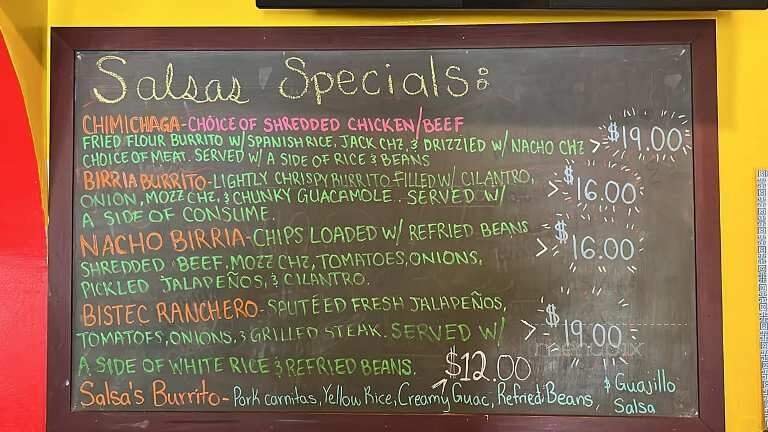 Salsas Specials:
CHIMICHAGA-CHOICE OF SHREDDED CHICKEN/BEEF
FRIED FLOUR BURRITO W/ SPANISH RICE, JACK CHZ, & DRIZZIED W/ NACHO CHZ > $19.00
CHOICE OF MEAT. SERVED W/ A SIDE OF RICE & BEANS
BIRRIA BURRITO-LIGHTLY CHRISPY BURRITO FILLED W/ CILANTRO,
ONION, MOZZ CHZ, & CHUNKY GUACAMOLE. SERVED W/ > $16.00
A SIDE OF CONSUME.
NACHO BIRRIA-CHIPS LOADED W/ REFRIED BEANS > $16.00
SHREDDED BEEF, MOZZ CHZ, TOMATOES, ONIONS,
PICKLED JALAPEÑOS, & CILANTRO.
BISTEC RANCHERO-SAUTÉED FRESH JALAPEÑOS,
TOMATOES, ONIONS, & GRILLED STEAK. SERVED W/ > $19.00
A SIDE OF WHITE RICE & REFRIED BEANS. $12.00
Salsa's Burrito-Pork carnitas, Yellow Rice, Creamy Guac, Refried Beans, & Guajillo
Salsa